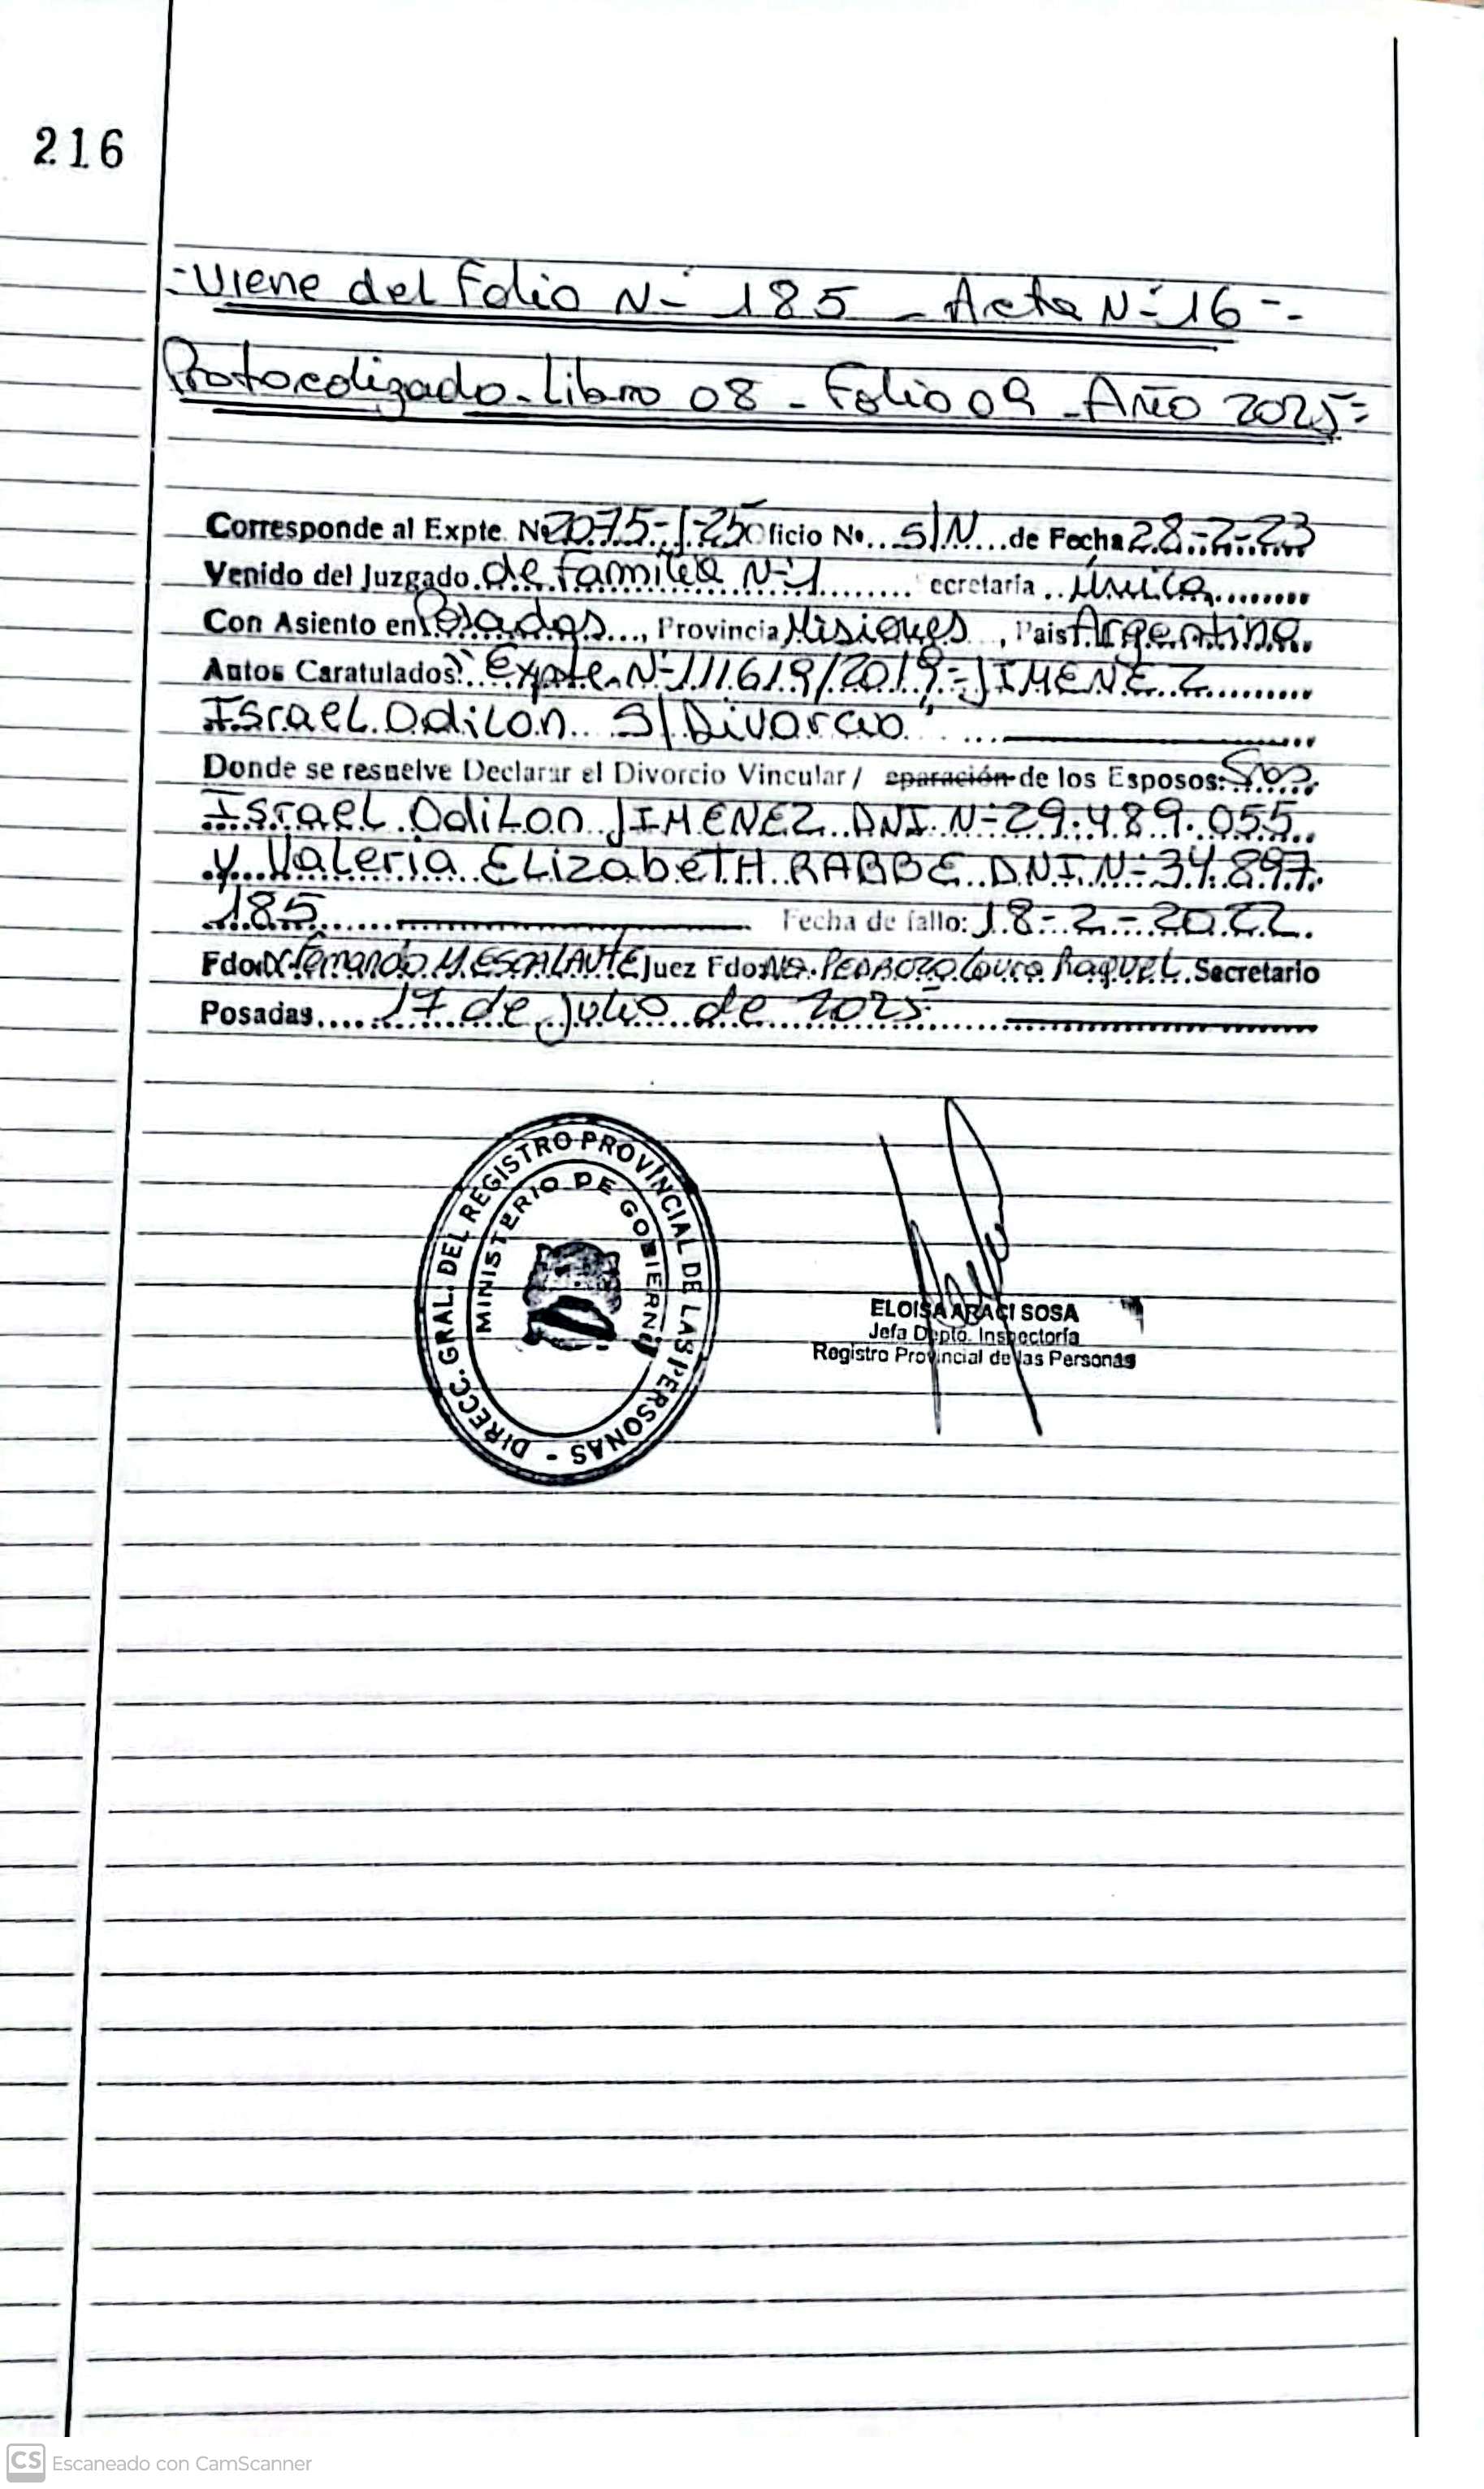 216
=Viene del Folio N- 185 - Acta N-16 -.
Protocolizado - Libro 08 - Folio 09 - Año 2025=
Corresponde al Expte. Nº 2075-J-25 Oficio Nº... S/N ...de Fecha 28-2-23
Venido del Juzgado de Familia N-1 ecretaría .. Única
Con Asiento en Posadas..., Provincia Misiones , País Argentina
Autos Caratulados: "Expte. N-111619/2019-JIMENEZ
Israel Odilon S/Divorcio"
Donde se resuelve Declarar el Divorcio Vincular / eparación de los Esposos: Sres.
Israel Odilon JIMENEZ DNI N-29.489.055
y Valeria ELizabeTH RABBE DNI N-34.897.
185 Fecha de fallo: 18-2-2022.
Fdo: Dr Fernando M. ESCALANTE Juez Fdo: PEDROZO Laura Raquel Secretario
Posadas.... 17 de julio de 2025
DIRECC. GRAL. DEL REGISTRO PROVINCIAL DE LAS PERSONAS -
MINISTERIO DE GOBIERNO
ELOISA ARACI SOSA
Jefa Depto. Inspectoría
Registro Provincial de las Personas
CS Escaneado con CamScanner